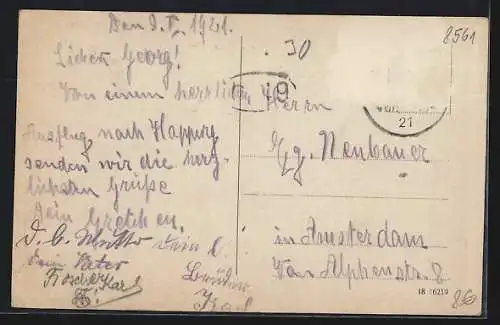 Den 9. V. 1921.
Lieber Georg!
Von einem herrlichen
Ausflug nach Happurg
senden wir die herz-
lichsten Grüße
Dein Gretchen.
D. b. Mutter Dein l.
dein Vater Bruder
Karl
Froscher Karl
. 30
8561
19
21
Herrn
Gg. Neubauer
in Amsterdam
Van Alphenstr. 8
18 16219
860